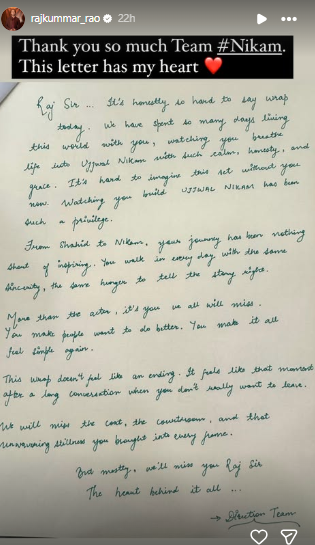 rajkummar_rao 22h
Thank you so much Team #Nikam.
This letter has my heart ❤️
Raj Sir ... It's honestly so hard to say wrap
today. We have spent so many days living
this world with you, watching you breathe
life into Ujjwal Nikam with such calm, honesty, and
grace. It's hard to imagine this set without you
now. Watching you build UJJWAL NIKAM has been
such a privilege.
From Shahid to Nikam, your journey has been nothing
short of inspiring. You walk in every day with the same
sincerity, the same hunger to tell the story right.
More than the actor, it's you we all will miss.
You make people want to do better. You make it all
feel simple again.
This wrap doesn't feel like an ending. It feels like that moment
after a long conversation when you don't really want to leave.
We will miss the coat, the courtroom, and that
unwavering stillness you brought into every frame.
But mostly, we'll miss you Raj Sir
The heart behind it all ...
→ Direction Team